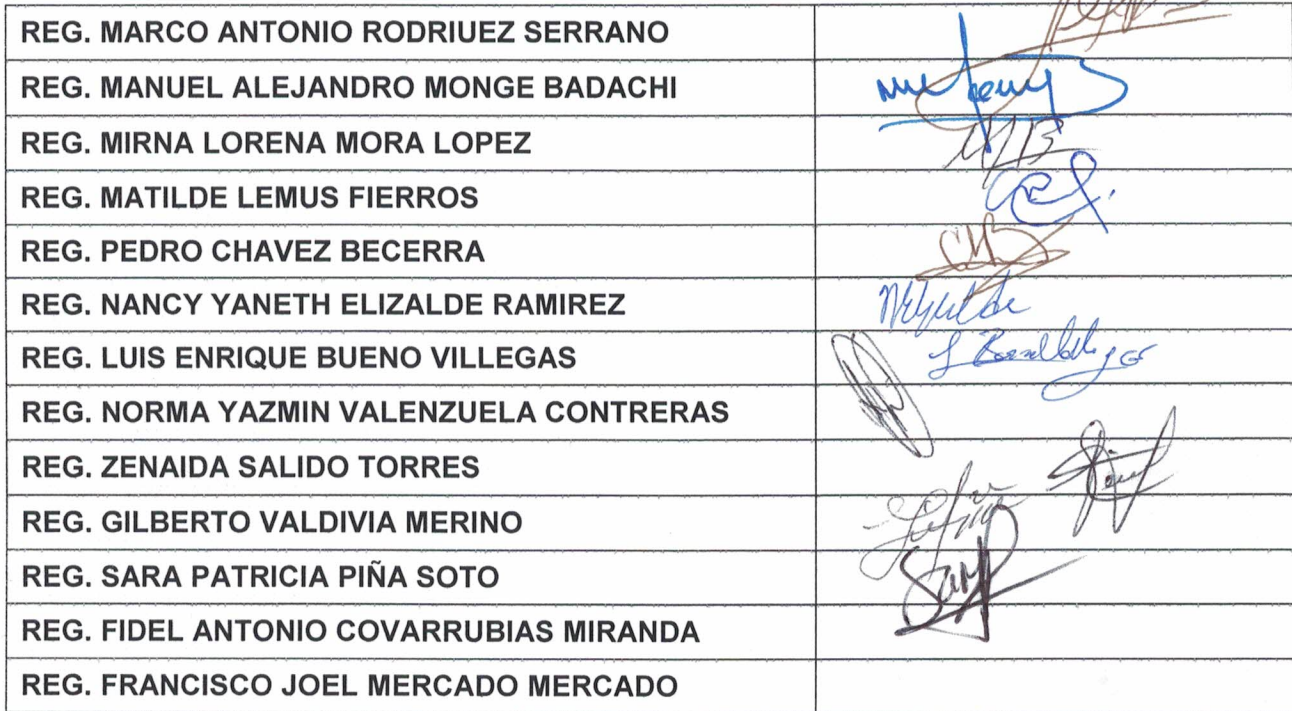 REG. MARCO ANTONIO RODRIUEZ SERRANO
REG. MANUEL ALEJANDRO MONGE BADACHI
REG. MIRNA LORENA MORA LOPEZ
REG. MATILDE LEMUS FIERROS
REG. PEDRO CHAVEZ BECERRA
REG. NANCY YANETH ELIZALDE RAMIREZ
REG. LUIS ENRIQUE BUENO VILLEGAS
REG. NORMA YAZMIN VALENZUELA CONTRERAS
REG. ZENAIDA SALIDO TORRES
REG. GILBERTO VALDIVIA MERINO
REG. SARA PATRICIA PIÑA SOTO
REG. FIDEL ANTONIO COVARRUBIAS MIRANDA
REG. FRANCISCO JOEL MERCADO MERCADO